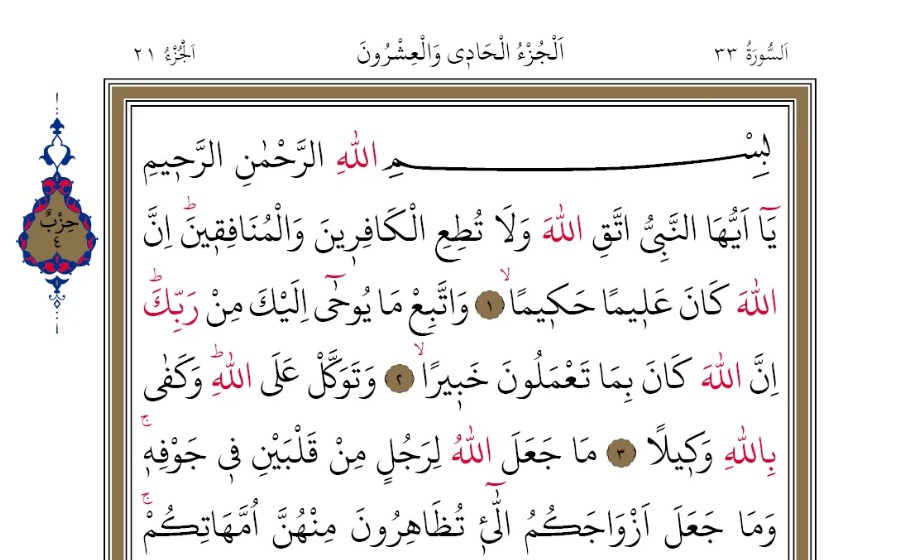 اَلسُّورَةُ ٣٣ اَلْجُزْءُ الْحَادِى وَالْعِشْرُونَ اَلْجُزْءُ ٢١
بِسْمِ اللّٰهِ الرَّحْمٰنِ الرَّحٖيمِ
يَٓا اَيُّهَا النَّبِىُّ اتَّقِ اللّٰهَ وَلَا تُطِعِ الْكَافِرٖينَ وَالْمُنَافِقٖينَؕ اِنَّ
اللّٰهَ كَانَ عَلٖيمًا حَكٖيمًاۙ ١ وَاتَّبِعْ مَا يُوحٰٓى اِلَيْكَ مِنْ رَبِّكَؕ
اِنَّ اللّٰهَ كَانَ بِمَا تَعْمَلُونَ خَبٖيرًاۙ ٢ وَتَوَكَّلْ عَلَى اللّٰهِؕ وَكَفٰى
بِاللّٰهِ وَكٖيلًا ٣ مَا جَعَلَ اللّٰهُ لِرَجُلٍ مِنْ قَلْبَيْنِ فٖى جَوْفِهٖۚ
وَمَا جَعَلَ اَزْوَاجَكُمُ الّٰٓـٖٔ تُظَاهِرُونَ مِنْهُنَّ اُمَّهَاتِكُمْۚ
حِزْبٌ
٤